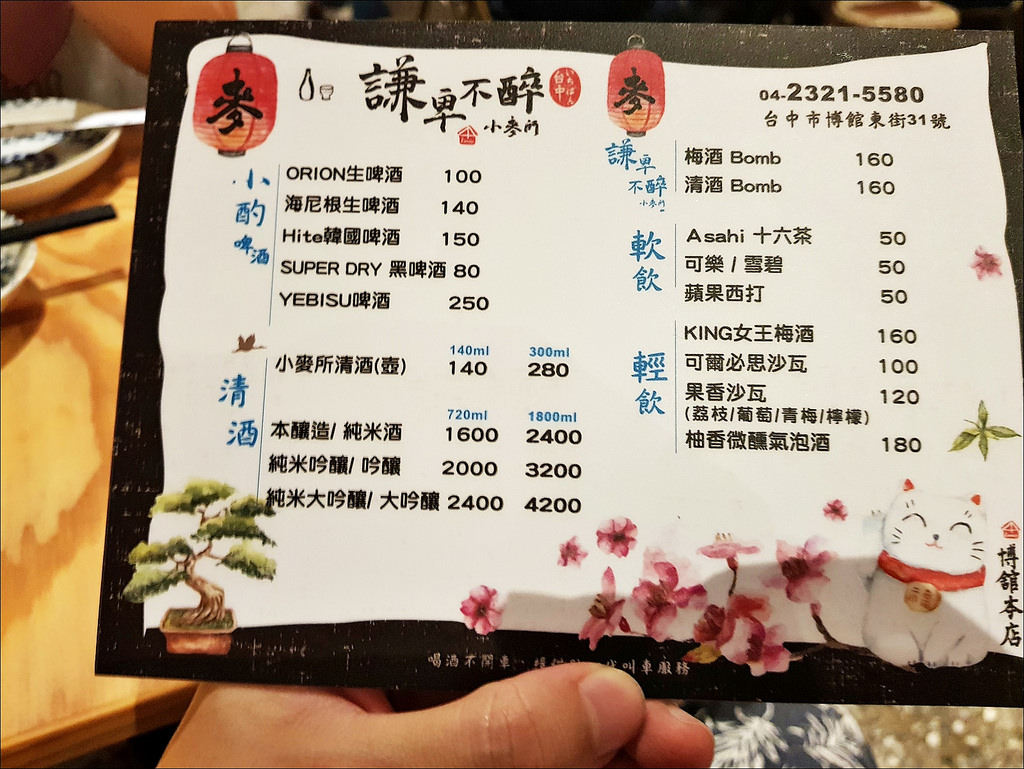 麥
謙卑不醉
いちばん
台中
小麥所
麥
04-2321-5580
台中市博館東街31號
小酌啤酒
ORION生啤酒 100
海尼根生啤酒 140
Hite韓國啤酒 150
SUPER DRY 黑啤酒 80
YEBISU啤酒 250
清酒
140ml 300ml
小麥所清酒(壺) 140 280
720ml 1800ml
本釀造/ 純米酒 1600 2400
純米吟釀/ 吟釀 2000 3200
純米大吟釀/ 大吟釀 2400 4200
謙卑不醉
小麥所
梅酒 Bomb 160
清酒 Bomb 160
軟飲
Asahi 十六茶 50
可樂 / 雪碧 50
蘋果西打 50
輕飲
KING女王梅酒 160
可爾必思沙瓦 100
果香沙瓦 120
(荔枝/葡萄/青梅/檸檬)
柚香微醺氣泡酒 180
博館本店
喝酒不開車 叫車服務